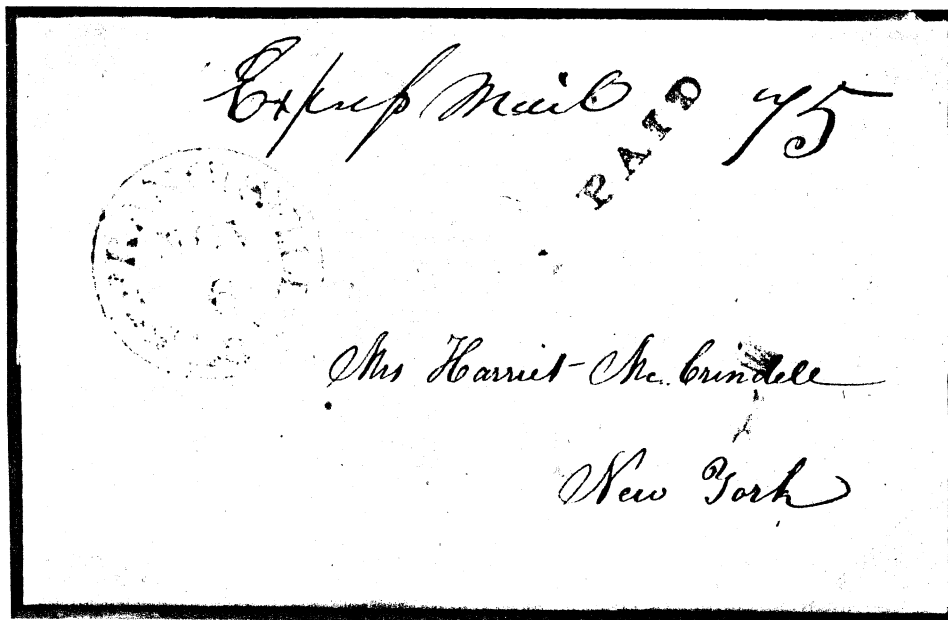 Express Mail PAID 75
NOV
6
Mrs Harriet Mc.Crindell
New York